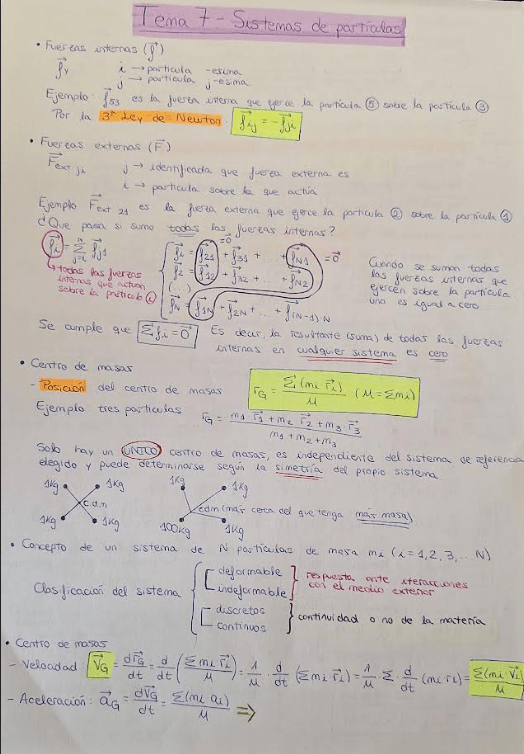 Tema 7 - Sistemas de partículas
• Fuerzas internas (f⃗)
f⃗ij i → partícula -esima
j → partícula j-esima
Ejemplo: f⃗53 es la fuerza interna que ejerce la partícula ⑤ sobre la partícula ③
Por la 3ª Ley de Newton: f⃗ij = -f⃗ji
• Fuerzas externas (F⃗)
F⃗ext ji j → identificada que fuerza externa es
i → partícula sobre la que actúa
Ejemplo F⃗ext 21 es la fuerza externa que ejerce la partícula ② sobre la partícula ①
¿Que pasa si sumo todas las fuerzas internas?
f⃗i = Σ f⃗j1
→ todas las fuerzas internas que actúan sobre la partícula i
f⃗1 = f⃗21 + f⃗31 + ... f⃗N1 = 0⃗
f⃗2 = f⃗12 + f⃗32 + ... + f⃗N2
(...)
f⃗N = f⃗1N + f⃗2N + ... + f⃗(N-1)N
Cuando se suman todas
las fuerzas internas que
ejercen sobre la partícula
uno es igual a cero
Se cumple que Σf⃗i = 0⃗ Es decir, la resultante (suma) de todas las fuerzas
internas en cualquier sistema es cero
• Centro de masas
- Posición del centro de masas r⃗G = Σ(mi r⃗i) / M (M = Σmi)
Ejemplo tres partículas r⃗G = m1 r⃗1 + m2 r⃗2 + m3 r⃗3 / m1 + m2 + m3
Solo hay un ÚNICO centro de masas, es independiente del sistema de referencia
elegido y puede determinarse según la simetría del propio sistema
1Kg 1Kg 1Kg 1Kg
c.d.m cdm (más cerca del que tenga más masa)
1Kg 1Kg 100kg 1Kg
• Concepto de un sistema de N partículas de masa mi (i = 1, 2, 3, ... N)
Clasificación del sistema
deformable
indeformable
respuesta ante iteracciones
con el medio exterior
discretos
continuos
continuidad o no de la materia
• Centro de masas
- Velocidad V⃗G = dr⃗G/dt = d/dt (Σmi r⃗i / M) = 1/M · d/dt (Σmi r⃗i) = 1/M Σ d/dt (mi ri) = Σ(mi · V⃗i) / M
- Aceleración: a⃗G = dV⃗G/dt = Σ(mi ai) / M ⇒